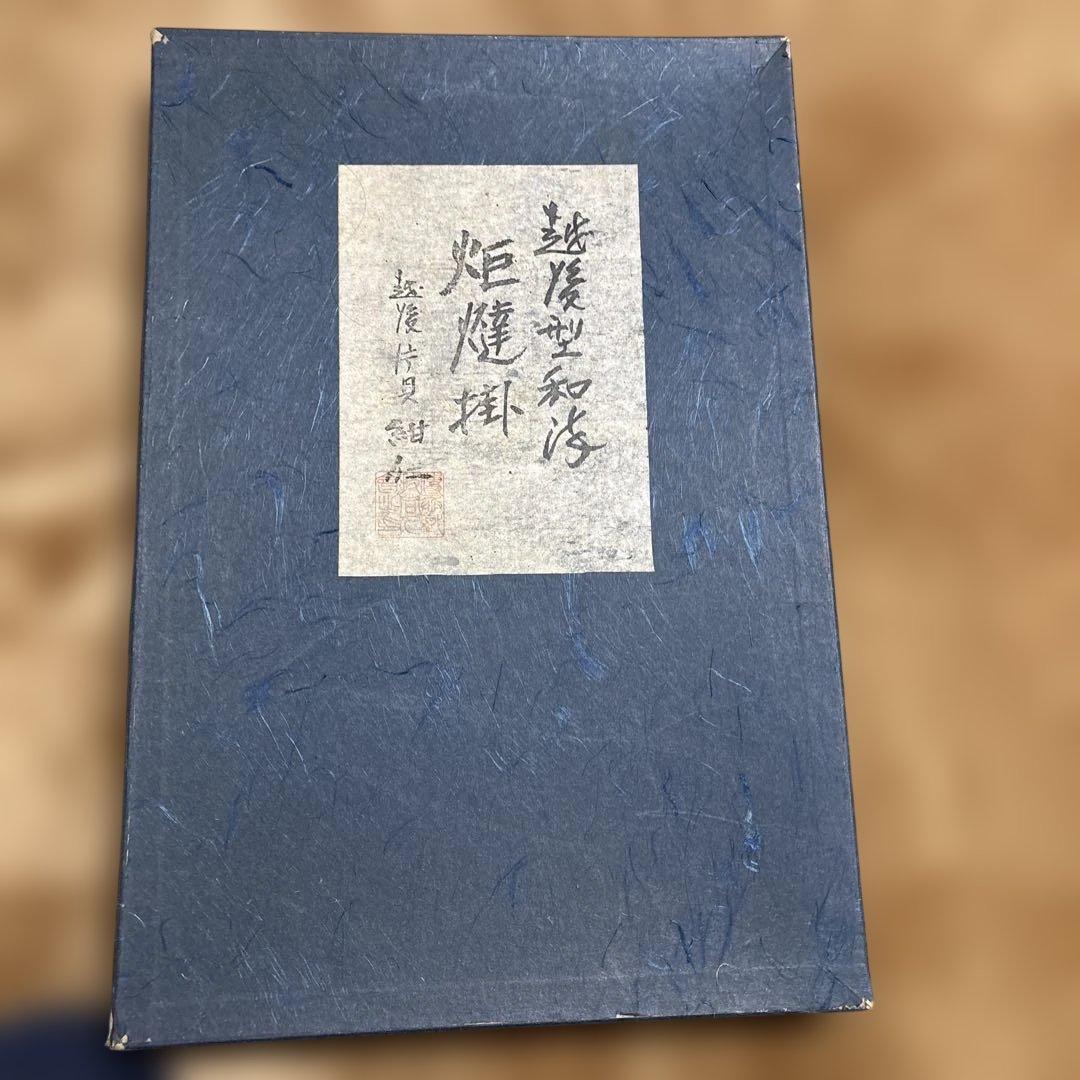 越後型和染
炬燵掛
越後片貝 紺仁